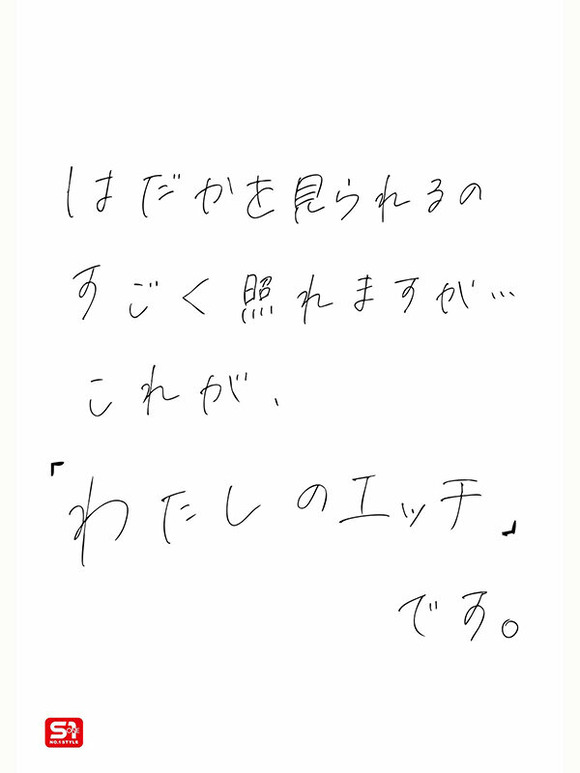 はだかを見られるの
すごく照れますが…
これが、
「わたしのエッチ」
です。
S1
NO.1 STYLE